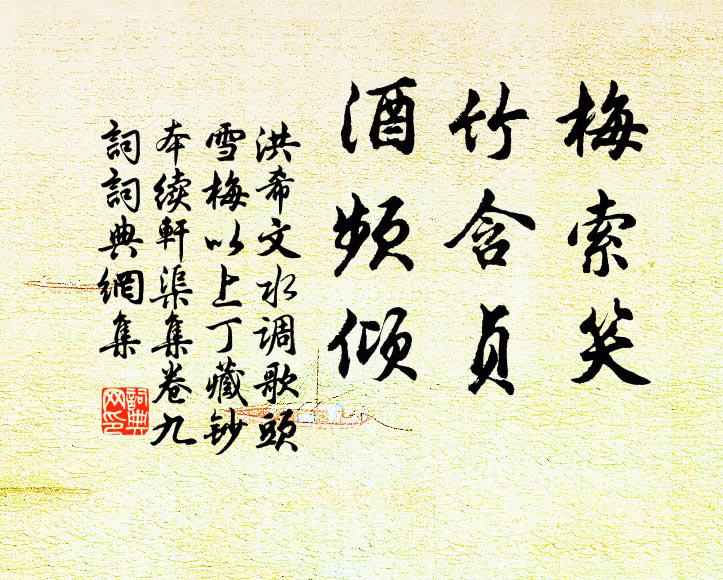 梅索笑
竹含贞
酒频倾
洪希文水调歌頭
雪梅以上丁藏鈔
本续軒渠集卷九
詞詞典網集
詞典网印